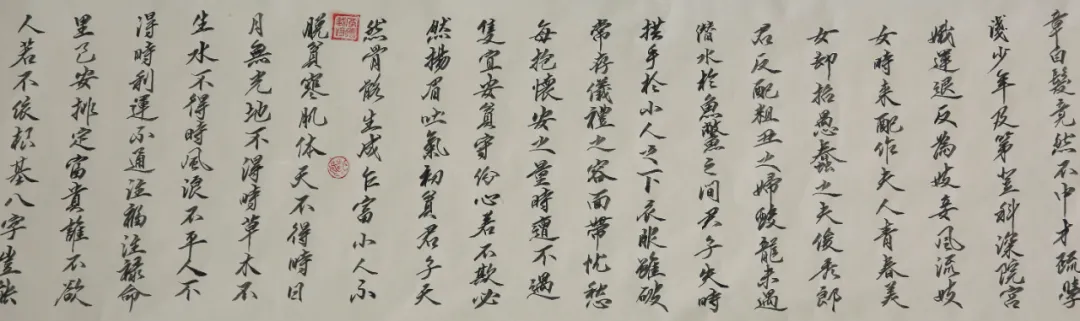 章白髮竟然不中才疏學
淺少年及第登科深院宮
娥運退反為妓妾風流妓
女時来配作夫人青春美
女却招愚蠢之夫俊秀郎
君反配粗丑之婦蛟龍未遇
潛水於魚鱉之間君子失時
拱手於小人之下衣服雖破
常存儀禮之容面帶忧愁
每抱懷安之量時遭不遇
隻宜安貧守份心若不欺必
然揚眉吐氣初貧君子天
然骨骼生成乍富小人不
脫貧寒肌体天不得時日
月無光地不得時草木不
生水不得時風浪不平人不
得時利運不通注福注祿命
里已安排定富貴誰不欲
人若不依根基八字豈能